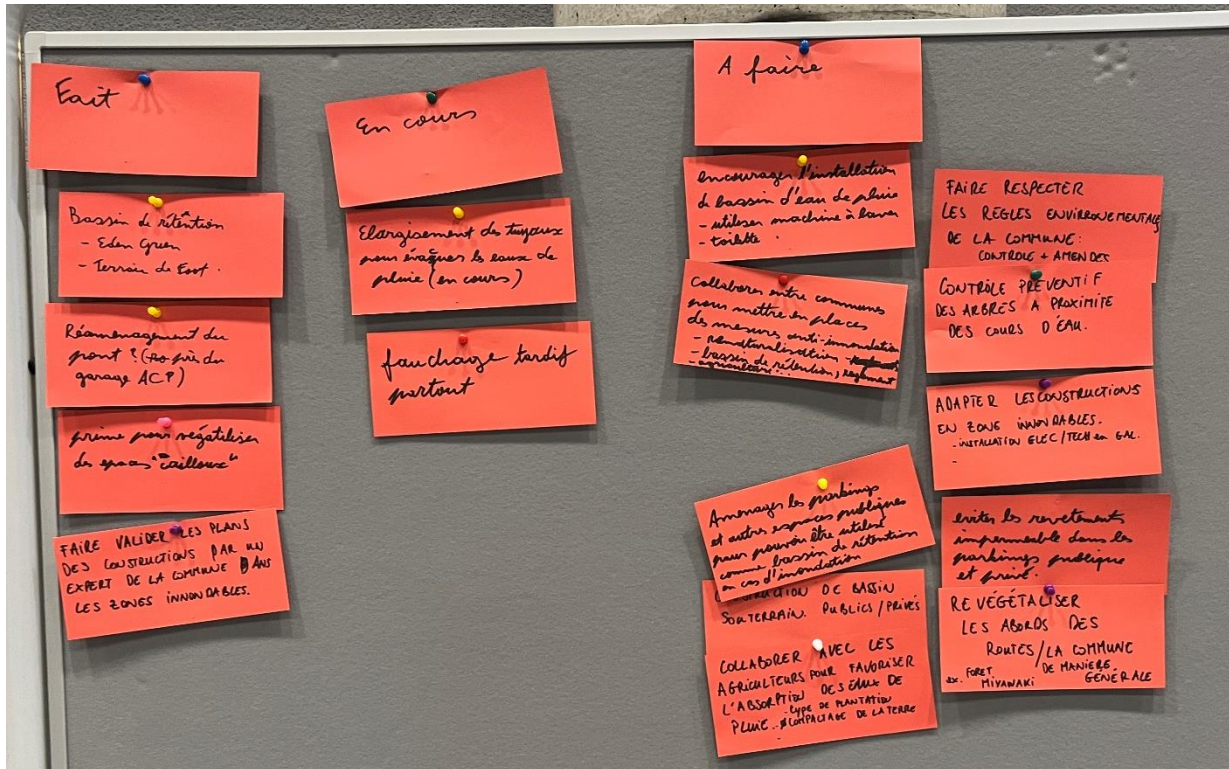 Fait
Bassin de rétention
- Eden Green
- Terrain de Foot.
Réaménagement du
pont ? (près du
garage ACP)
prime pour végétaliser
des espaces "cailloux"
FAIRE VALIDER LES PLANS
DES CONSTRUCTIONS PAR UN
EXPERT DE LA COMMUNE DANS
LES ZONES INNONDABLES.
En cours
Elargisement des tuyaux
pour évaquer les eaux de
pluie (en cours)
fauchage tardif
partout
A faire
encourager l'installation
de bassin d'eau de pluie
- utiliser machine à laver
- toilette.
Collaborer entre communes
pour mettre en places
des mesures anti-innondation
- renaturalisation
- bassin de rétention, règlement
- agriculture...
Aménager les parkings
et autres espaces publiques
pour pouvoir être utilisé
comme bassin de rétention
en cas d'inondation
DE BASSIN
SOUTERRAIN. PUBLICS/PRIVÉS
COLLABORER AVEC LES
AGRICULTEURS POUR FAVORISER
L'ABSORPTION DES EAUX DE
PLUIE. - TYPE DE PLANTATION
- COMPACTAGE DE LA TERRE
FAIRE RESPECTER
LES REGLES ENVIRRONEMENTALES
DE LA COMMUNE:
CONTROLE + AMENDES
CONTRÔLE PRÉVENTIF
DES ARBRES A PROXIMITE
DES COURS D'ÉAU.
ADAPTER LES CONSTRUCTIONS
EN ZONE INNONDABLES.
- INSTALLATION ELEC/TECH en GAL.
-
eviter les revetements
impermeable dans les
parkings publique
et privé.
REVÉGÉTALISER
LES ABORDS DES
ROUTES/LA COMMUNE
DE MANIÈRE
GÉNÉRALE
ex. FORET
MIYAWAKI